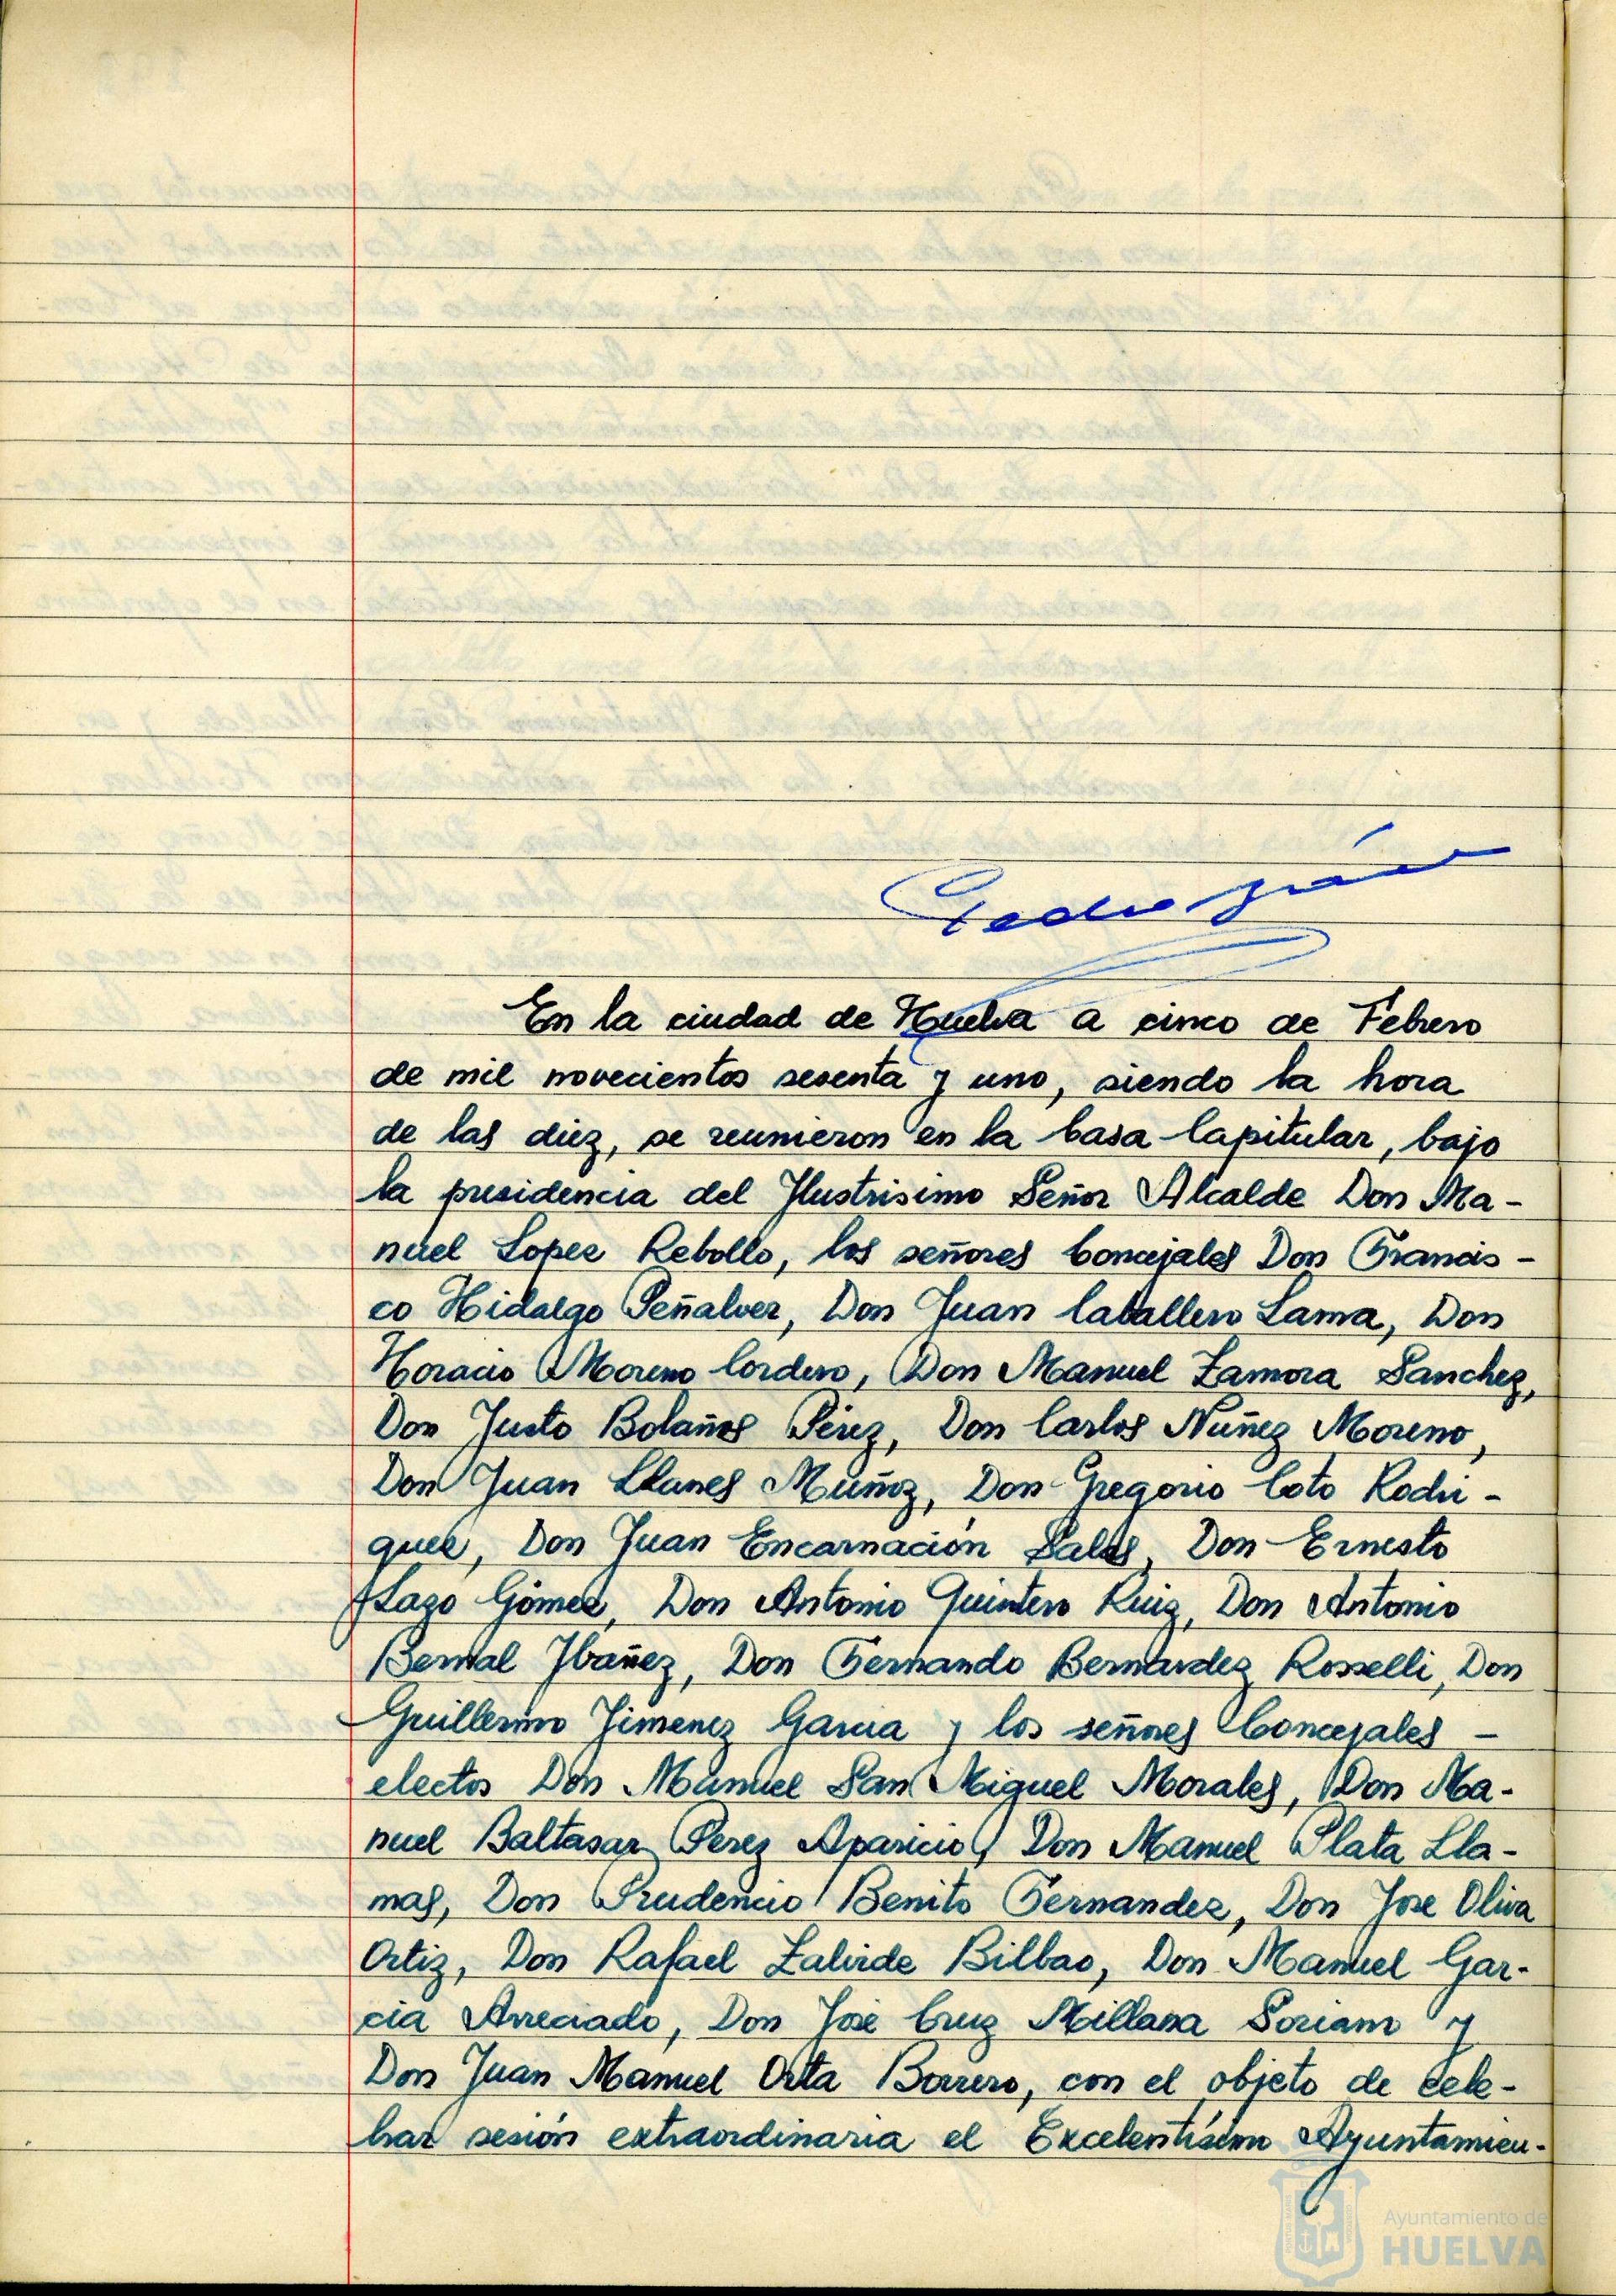 Pedro
En la ciudad de Huelva a cinco de Febrero
de mil novecientos sesenta y uno, siendo la hora
de las diez, se reunieron en la Casa Capitular, bajo
la presidencia del Ilustrisimo Señor Alcalde Don Ma-
nuel Lopez Rebollo, los señores Concejales Don Francis-
co Hidalgo Peñalver, Don Juan Caballero Lama, Don
Horacio Moreno Cordero, Don Manuel Zamora Sanchez,
Don Justo Bolaños Pérez, Don Carlos Nuñez Moreno,
Don Juan Llanes Muñoz, Don Gregorio Coto Rodri-
guez, Don Juan Encarnación Salas, Don Ernesto
Lazo Gómez, Don Antonio Quintero Ruiz, Don Antonio
Bernal Ibañez, Don Fernando Bernardez Rosselli, Don
Guillermo Jimenez Garcia y los señores Concejales -
electos Don Manuel San Miguel Morales, Don Ma-
nuel Baltasar Perez Aparicio, Don Manuel Plata Lla-
mas, Don Prudencio Benito Fernandez, Don Jose Oliva
Ortiz, Don Rafael Zalvide Bilbao, Don Manuel Gar-
cia Arreciado, Don José Cruz Millana Soriano y
Don Juan Manuel Orta Borrero, con el objeto de cele-
brar sesión extraordinaria el Excelentísimo Ayuntamien-
Ayuntamiento de
HUELVA